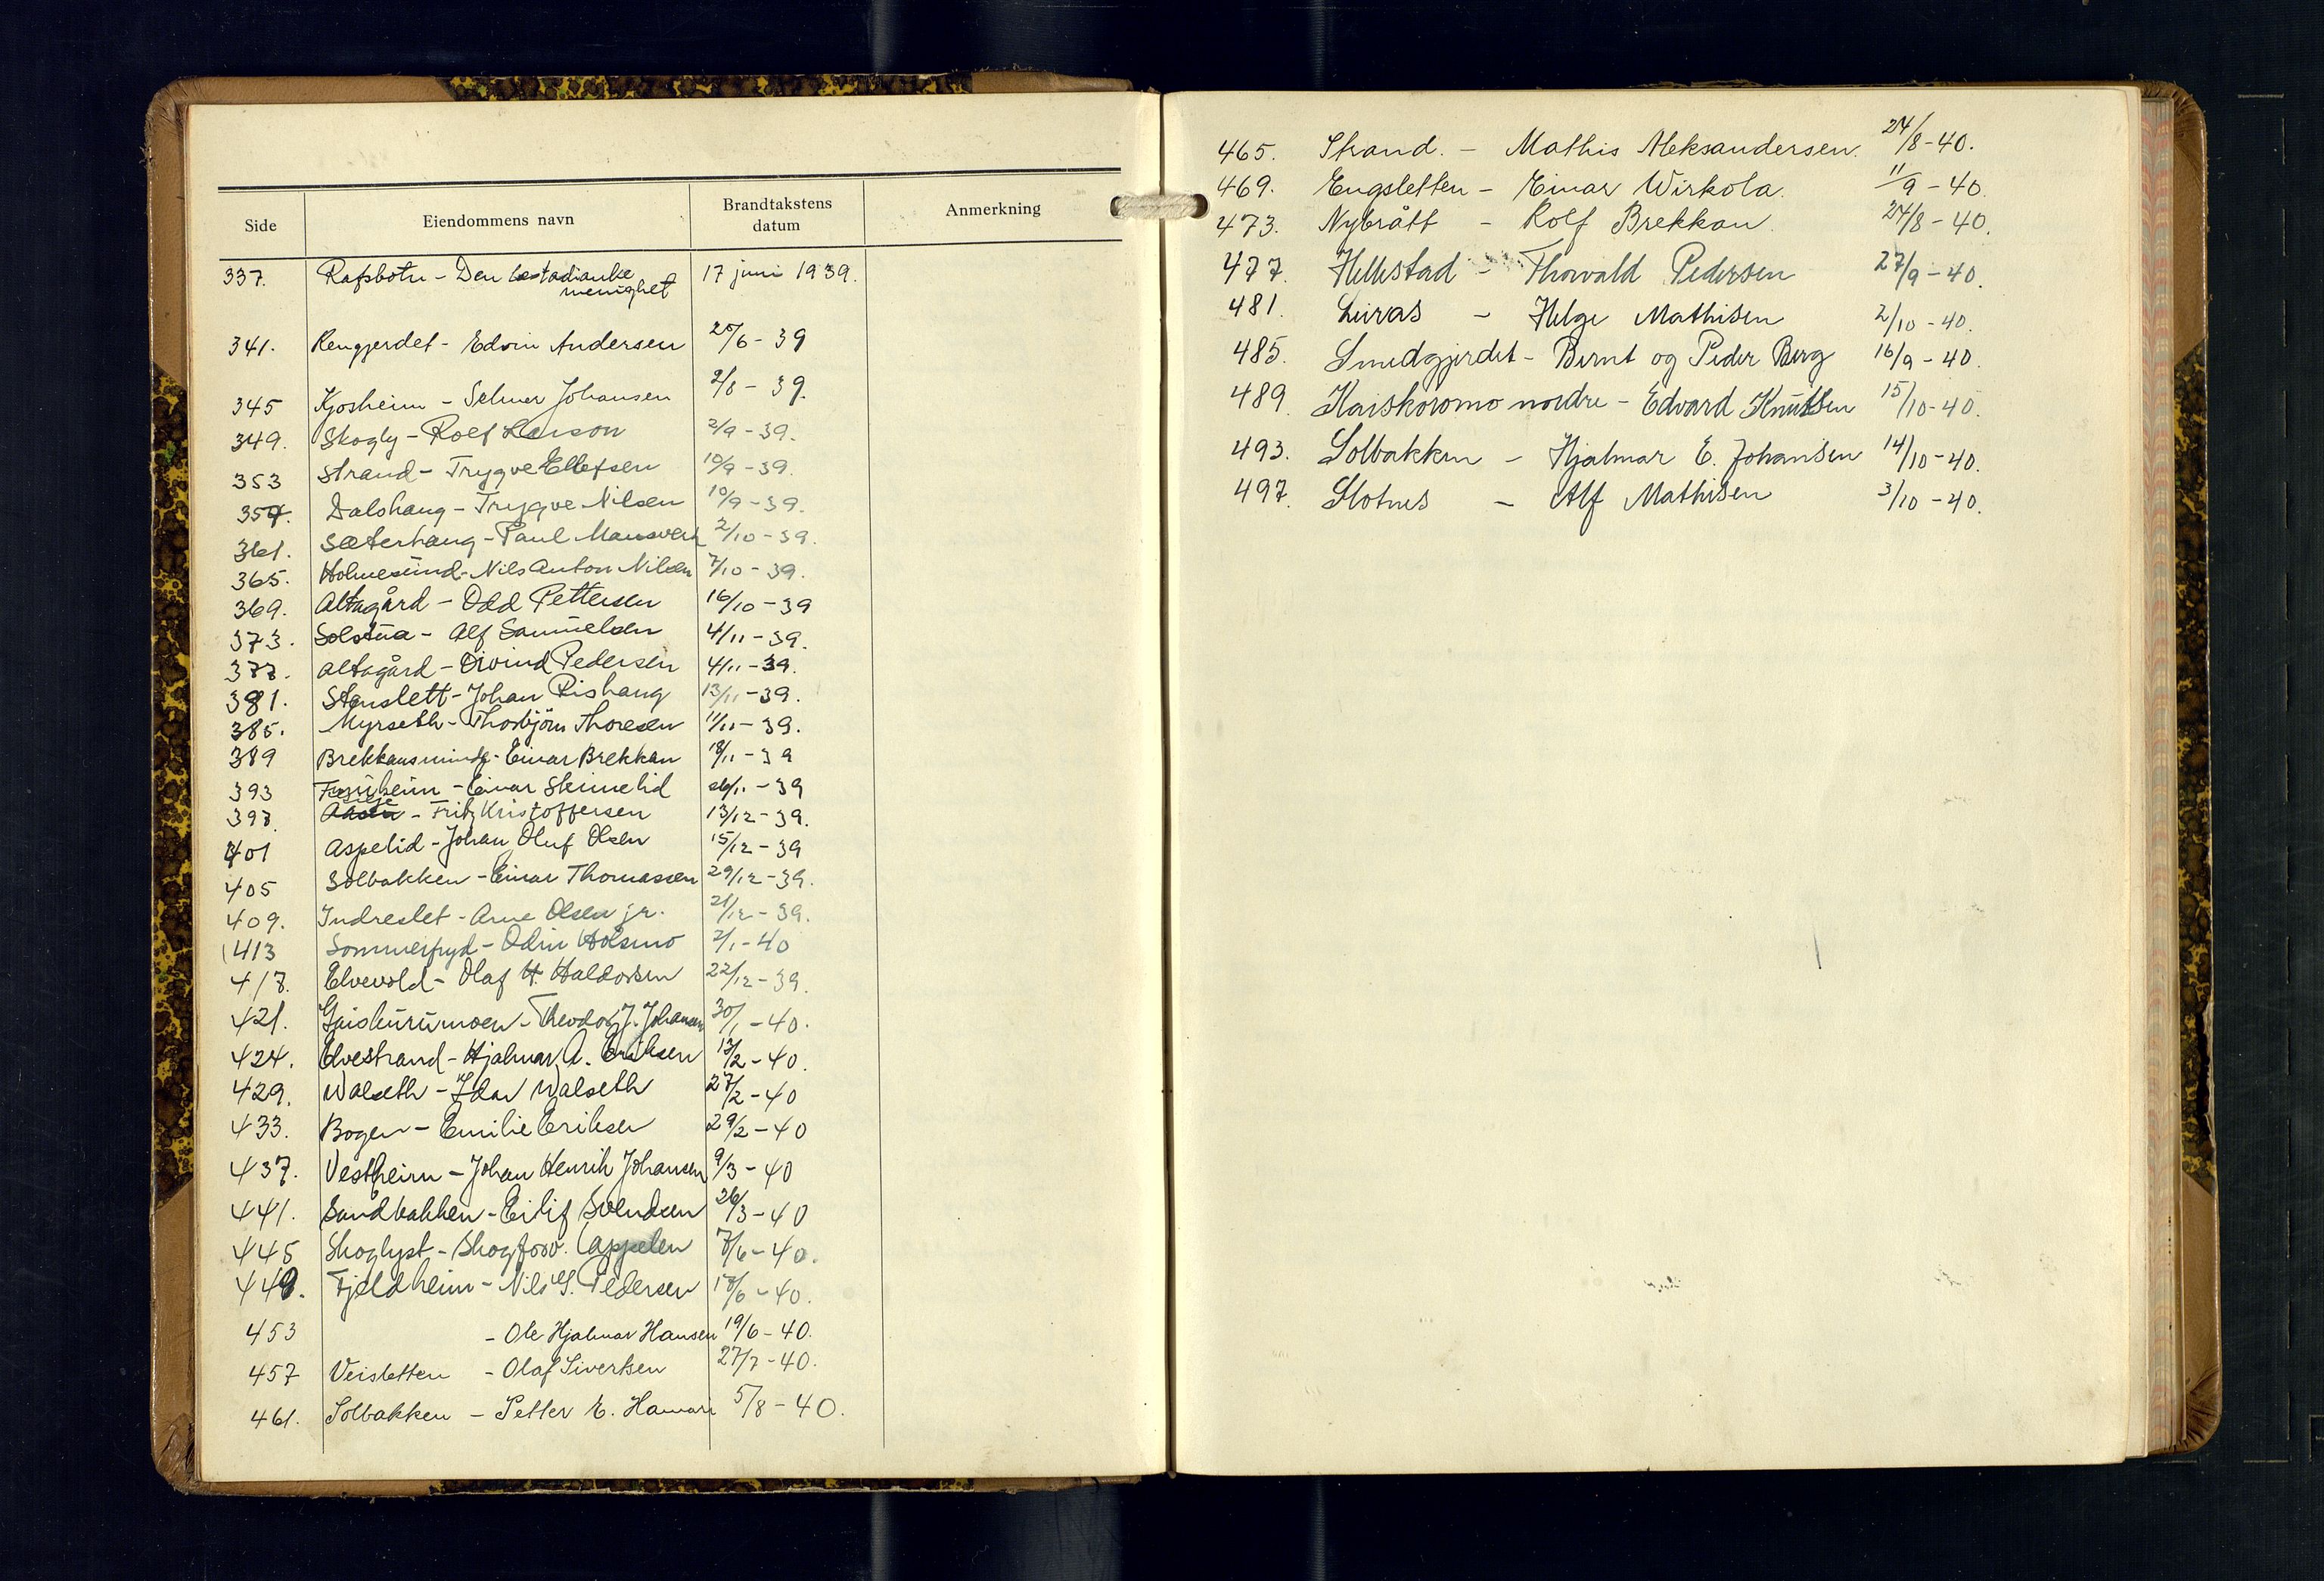 Side Eiendommens navn Brandtakstens datum Anmerkning
337. Rafsbotn - Den læstadianske menighet 17 juni 1939.
341. Rengjerdet - Edvin Andersen 20/6 - 39
345 Kjosheim - Selmer Johansen 2/8 - 39.
349. Skogly - Rolf Larson 2/9 - 39.
353 Strand - Trygve Ellefsen 10/9 - 39.
357. Dalshaug - Trygve Nilsen 10/9 - 39.
361. Sæterhaug - Paul Mansverk 2/10 - 39.
365. Holmesund - Nils Anton Nilsen 7/10 - 39.
369. Altagård - Odd Pettersen 16/10 - 39
373. Solstua - Alf Samuelsen 4/11 - 39.
377. Altagård - Oivind Pedersen 4/11 - 39.
381. Stenslett - Johan Rishaug 13/11 - 39.
385. Myrseth - Thorbjörn Thoresen 11/11 - 39.
389 Brekkansminde - Einar Brekkan 18/11 - 39
393 Furuheim - Einar Skimelid 26/11 - 39
397. - Fritz Kristoffersen 13/12 - 39.
401 Aspelid - Johan Oluf Olsen 15/12 - 39
405 Solbakken - Einar Thomassen 29/12 - 39.
409. Indreslet - Arne Olsen jr. 21/12 - 39.
413 Sommerfryd - Odin Holsmo 2/1 - 40
417. Elvevold - Olaf H. Haldorsen 22/12 - 39.
421. Gaiskurumoen - Theodor J. Johansen 30/1 - 40.
424. Elvestrand - Hjalmar A. Eriksen 13/2 - 40.
429. Walseth - Idar Walseth 27/2 - 40
433. Bogen - Emilie Eriksen 29/2 - 40
437. Vestheim - Johan Henrik Johansen 9/3 - 40
441. Sandbakken - Eilif Svendsen 26/3 - 40
445 Skoglyst - Skogforv. Cappelen 7/6 - 40.
449. Fjeldheim - Nils G. Pedersen 18/6 - 40.
453 - Ole Hjalmar Hansen 19/6 - 40.
457 Veisletten - Olaf Sivertsen 27/7 - 40.
461. Solbakken - Petter E. Hamari 5/8 - 40.
465. Strand. - Mathis Aleksandersen. 24/8 - 40.
469. Engsletten - Einar Wirkola. 11/9 - 40.
473. Nybrått - Rolf Brekkan. 24/8 - 40.
477. Hellestad - Thorvald Pedersen 27/9 - 40.
481. Luras - Helge Mathisen 2/10 - 40.
485. Smedgjerdet - Bernt og Peder Berg 16/9 - 40.
489. Kaiskoromo nordre - Edvard Knutsen 15/10 - 40.
493. Solbakken - Hjalmar E. Johansen 14/10 - 40.
497. Slotnes - Alf Mathisen 3/10 - 40.